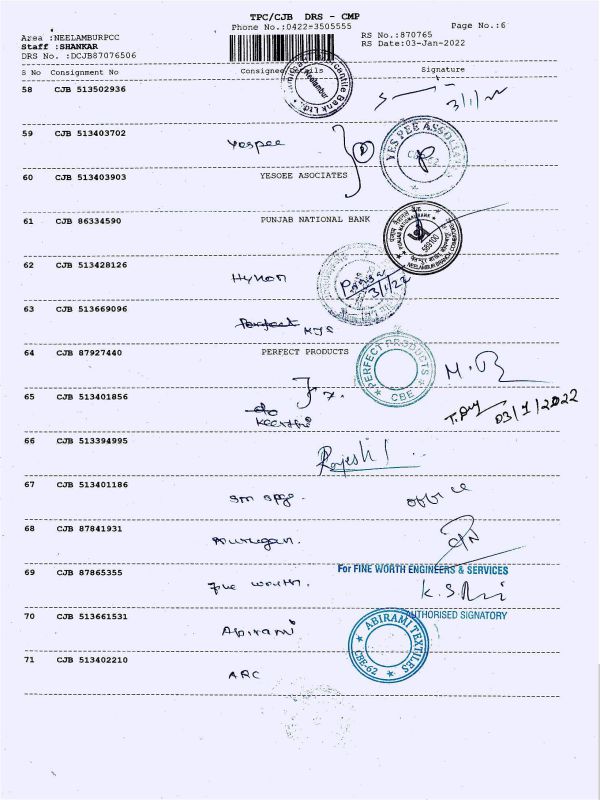 TPC/CJB DRS - CMP
Phone No.:0422-3505555
Page No.:6
Area :NEELAMBURPCC
Staff :SHANKAR
DRS No. :DCJB87076506
RS No.:870765
RS Date:03-Jan-2022
S No Consignment No Consignee Details Signature
58 CJB 513502936
Mercantile Bank Ltd.
Neelambur
3/1/22
59 CJB 513403702
Yespee
YES PEE ASSOCIATES
60 CJB 513403903 YESOEE ASOCIATES
61 CJB 86334590 PUNJAB NATIONAL BANK
PUNJAB NATIONAL BANK
62 CJB 513428126
Hynon
3/1/22
63 CJB 513669096
Perfect MJS
64 CJB 87927440 PERFECT PRODUCTS
PERFECT PRODUCTS
CBE
65 CJB 513401856
03/1/2022
66 CJB 513394995
Rajesh
67 CJB 513401186
office
68 CJB 87841931
Murugan.
69 CJB 87865355
Fine worth.
For FINE WORTH ENGINEERS & SERVICES
AUTHORISED SIGNATORY
70 CJB 513661531
Abirami
ABIRAMI TEXTILES
CBE-62
71 CJB 513402210
ARC